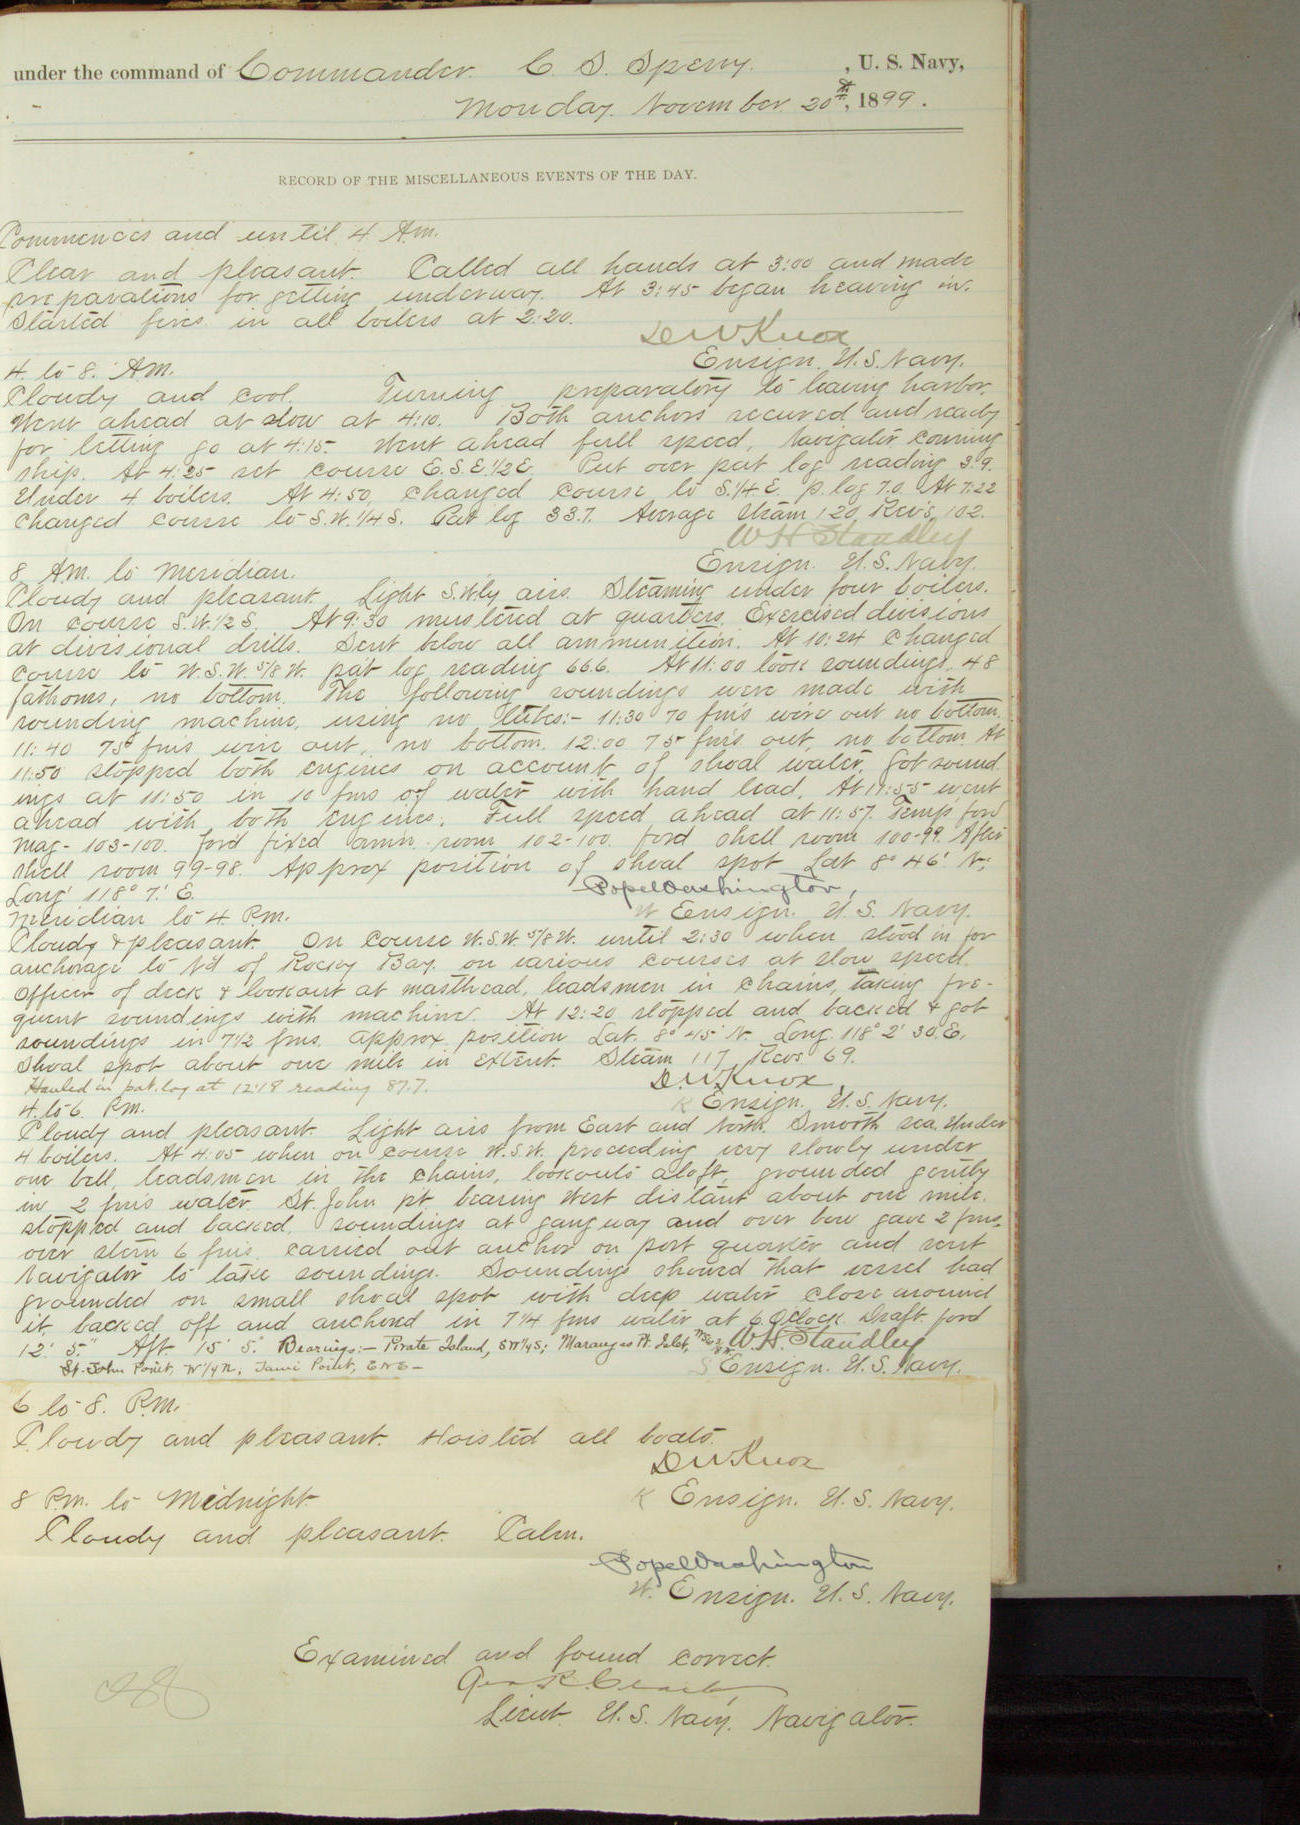 under the command of Commander. C. S. Sperry. , U. S. Navy,
Monday. November 20th, 1899.
RECORD OF THE MISCELLANEOUS EVENTS OF THE DAY.
Commences and until 4 Am.
Clear and pleasant. Called all hands at 3:00 and made
preparations for getting underway. At 3:45 began heaving in.
Started fires in all boilers at 2:20.
D W Knox
Ensign. U.S. Navy.
4 to 8. Am.
Cloudy and cool. Turning preparatory to leaving harbor.
Went ahead at slow at 4:10. Both anchors secured and ready
for letting go at 4:15. Went ahead full speed, Navigator conning
ship. At 4:25 set course E.S.E.1/2E. Put over pat log reading 3.9.
Under 4 boilers. At 4:50, changed course to S.1/4E. p. log 7.0. At 7:22
changed course to S.W.1/4S. Pat log 33.7. Average steam 120, Revs, 102.
W H Standley
Ensign. U.S. Navy.
8 Am. to Meridian.
Cloudy and pleasant. Light S.W.ly airs. Steaming under four boilers.
On course S.W.1/2S. At 9:30 mustered at quarters. Exercised divisions
at divisional drills. Sent below all ammunition. At 10:24 changed
course to W.S.W.5/8W. pat log reading 66.6. At 11:00 took soundings, 48
fathoms, no bottom. The following soundings were made with
sounding machine, using no tubes:- 11:30 70 fms wire out no bottom.
11:40 75 fms wire out, no bottom. 12:00 75 fms out, no bottom. At
11:50 stopped both engines on account of shoal water, got sound
ings at 11:50 in 10 fms of water with hand lead. At 11:55 went
ahead with both engines. Full speed ahead at 11:57. Temp ford
mag- 103-100. for'd fixed amn. room 102-100. ford shell room 100-99. After
shell room 99-98. Approx position of shoal spot Lat 8° 46' N;
Long 118° 7' E.
Pope Washington,
Meridian to 4 P.m.
W Ensign. U.S. Navy.
Cloudy & pleasant. On course W.S.W.5/8W. until 2:30 when stood in for
anchorage to N'd of Rocky Bay. on various courses at slow speed.
Officer of deck & lookout at masthead, leadsmen in chains, taking fre-
quent soundings with machine. At 12:20 stopped and backed & got
soundings in 7 1/2 fms. approx. position Lat. 8° 45' N. Long. 118° 2' 30" E.
Shoal spot about one mile in extent. Steam 117, Revs. 69.
Hauled in pat. log at 12:18 reading 87.7.
D.W. Knox,
4 to 6 P.m.
K Ensign. U.S. Navy.
Cloudy and pleasant. Light airs from East and North. Smooth sea. Under
4 boilers. At 4:05 when on course W.S.W. proceeding very slowly under
one bell, leadsmen in the chains, lookouts aloft, grounded gently
in 2 fms water. St. John pt. bearing West distant about one mile.
stopped and backed, soundings at gangway and over bow gave 2 fms,
over stern 6 fms. carried out anchor on port quarter and sent
Navigator to take soundings. Soundings showed that vessel had
grounded on small shoal spot with deep water close around
it. backed off and anchored in 7 1/4 fms water at 6 O'clock. Draft. ford
12' 5" Aft 15' 5" Bearings:- Pirate Island, SW1/4S; Marangas Pt. Islet,
W.H. Standley
St. John Point, W1/4N, ENE-
S Ensign. U.S. Navy.
6 to 8. P.m.
Cloudy and pleasant. Hoisted all boats.
D W Knox
K Ensign. U.S. Navy.
8 P.m. to Midnight
Cloudy and pleasant. Calm.
Pope Washington
W. Ensign. U.S. Navy.
Examined and found correct.
Geo R. Clark,
Lieut. U.S. Navy. Navigator.